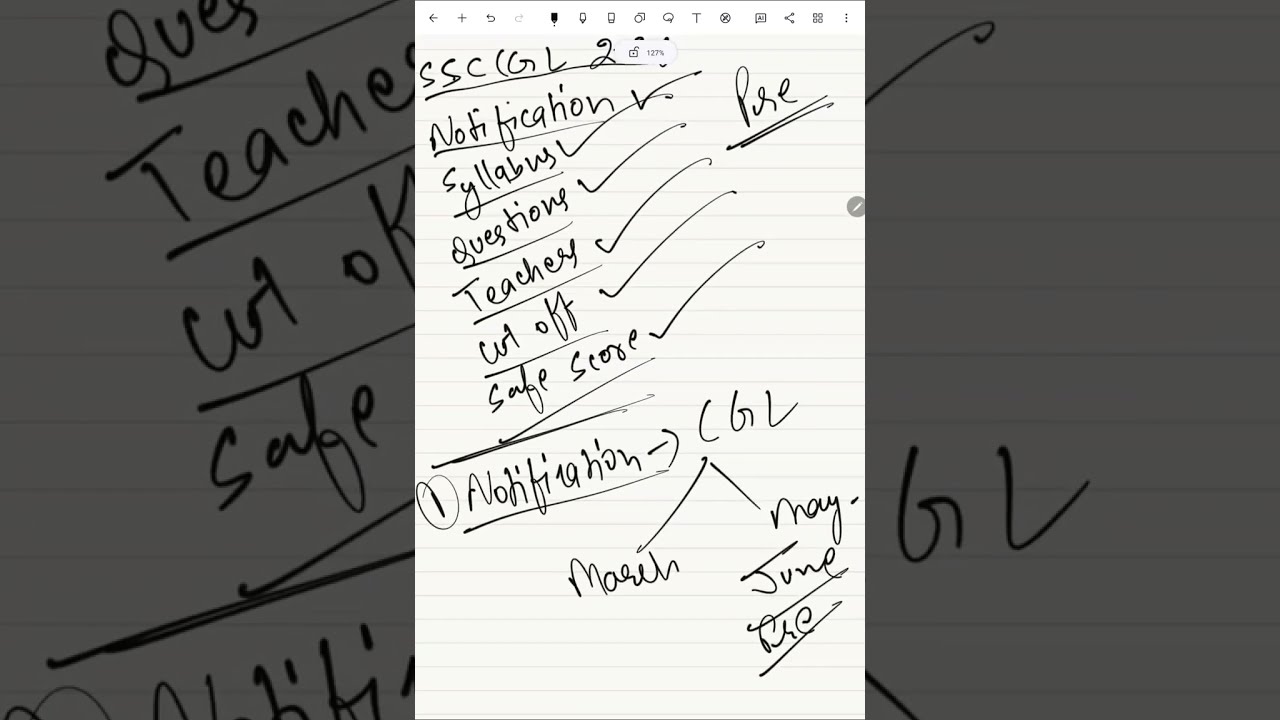 127%
SSC CGL 2
Notification
Pre
Syllabus
Questions
Teachers
Cut off
Safe Score
① Notification → CGL
March
May-
June
Pre